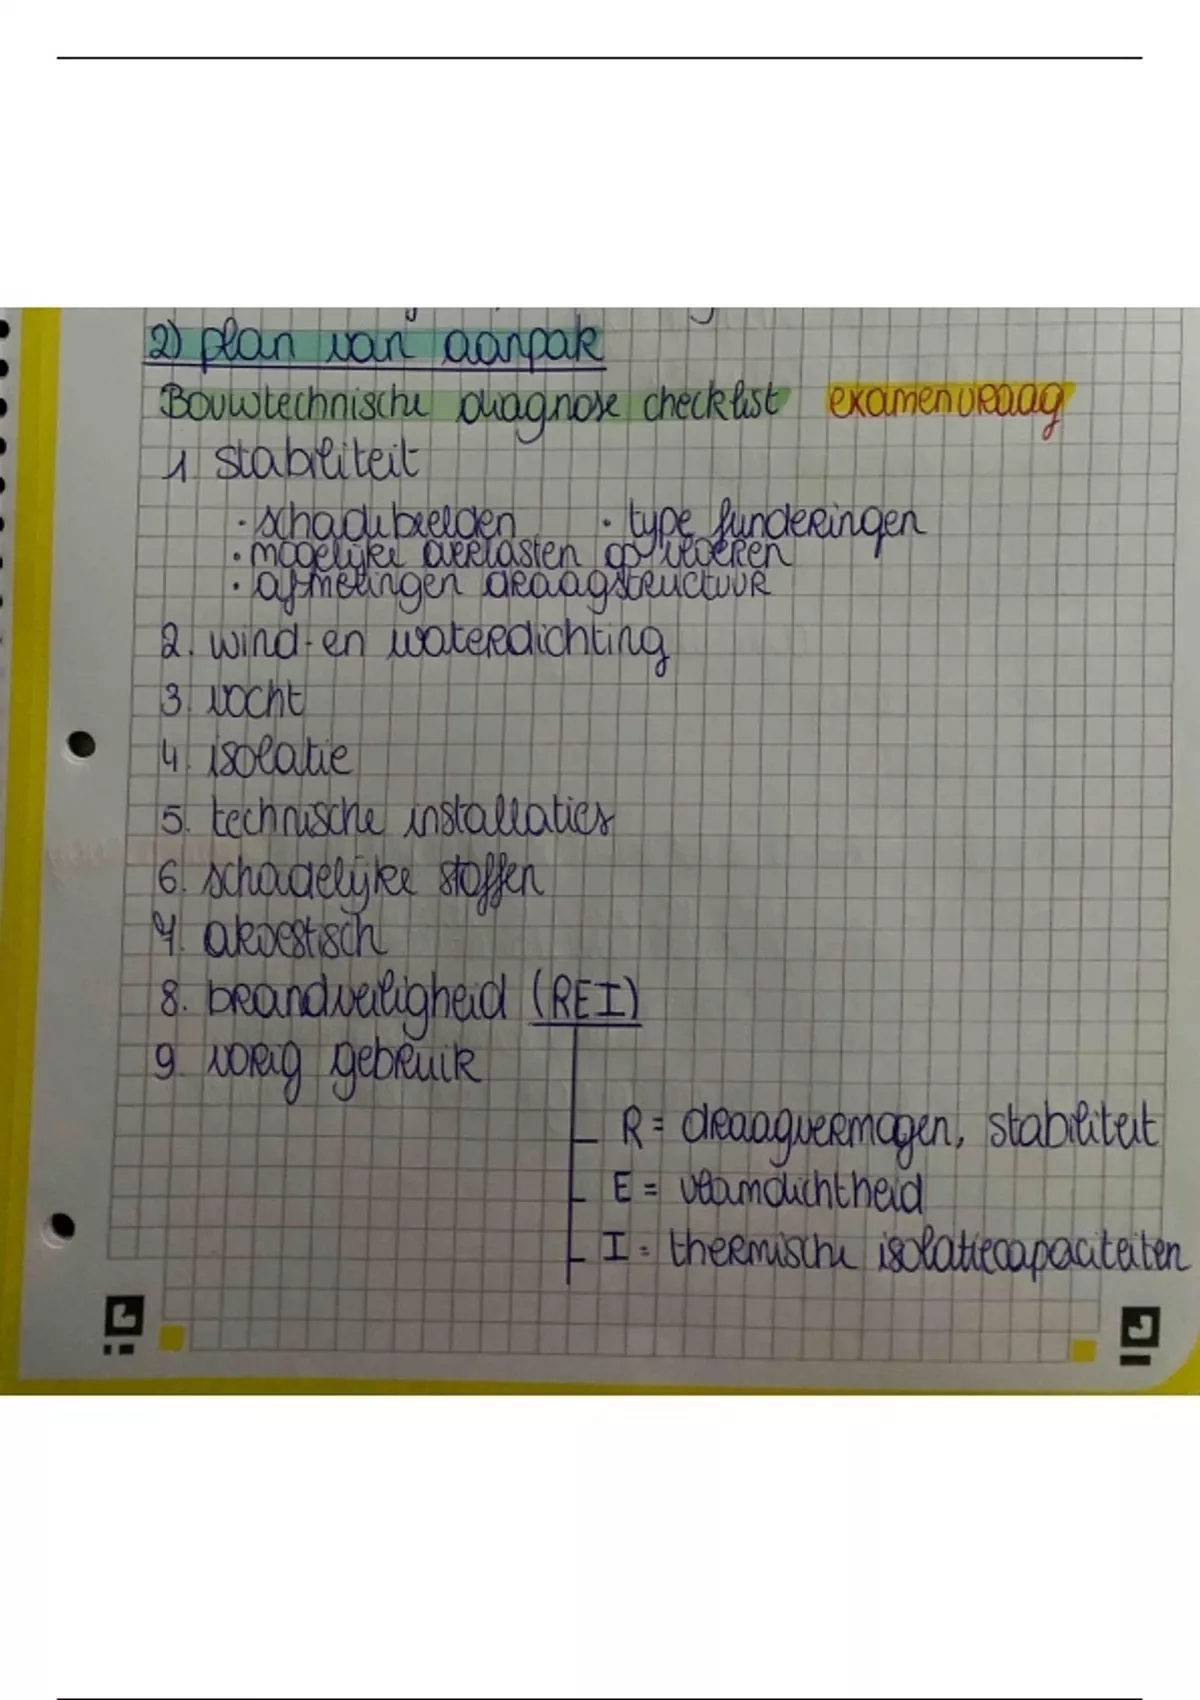 2) plan van aanpak
Bouwtechnische diagnose checklist examenvraag
1. stabiliteit
• schadebeelden • type funderingen
• mogelijke overlasten op vloeren
• afmetingen draagstructuur
2. wind- en waterdichting
3. vocht
4. isolatie
5. technische installaties
6. schadelijke stoffen
7. akoestisch
8. brandveiligheid (REI)
9. vorig gebruik
R = draagvermogen, stabiliteit
E = vlamdichtheid
I = thermische isolatiecapaciteiten